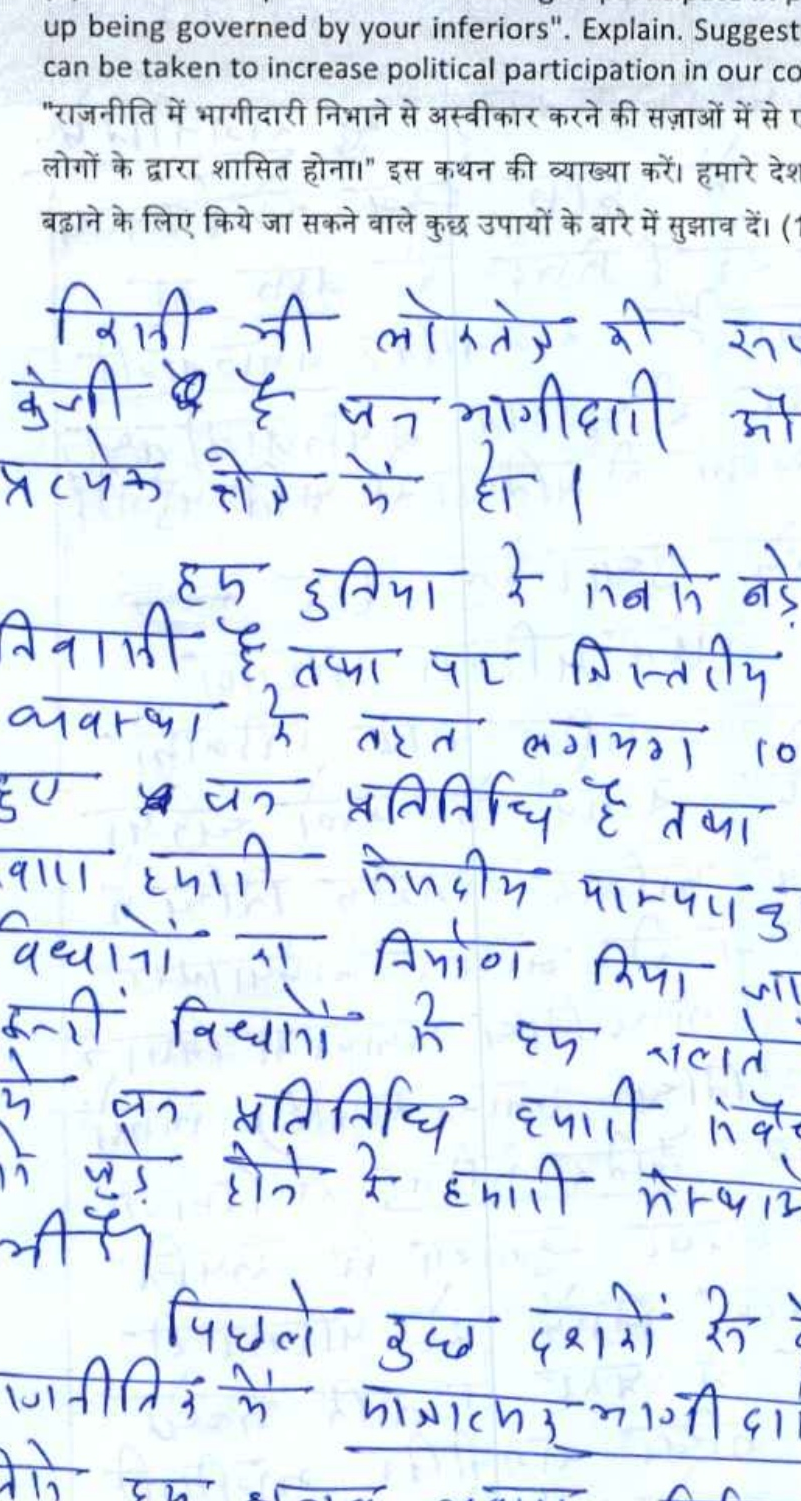 up being governed by your inferiors". Explain. Suggest
can be taken to increase political participation in our co
"राजनीति में भागीदारी निभाने से अस्वीकार करने की सज़ाओं में से ए
लोगों के द्वारा शासित होना।" इस कथन की व्याख्या करें। हमारे देश
बढ़ाने के लिए किये जा सकने वाले कुछ उपायों के बारे में सुझाव दें। (1
किसी भी लोकतंत्र की सफ
कुंजी है जन भागीदारी औ
प्रत्येक क्षेत्र में हो।
हम दुनिया के सबसे बड़े
निवासी है तथा पर त्रिस्तरीय
व्यवस्था के तहत लगभग 10
हुए जन प्रतिनिधि है तथा
हमारी संसदीय परम्परा
विधानों का निर्माण किया जा
विधानों में हम चलते
जन प्रतिनिधि हमारी
जुड़े होने के हमारी
भी है।
पिछले कुछ दशकों के
में भागीदा
हम